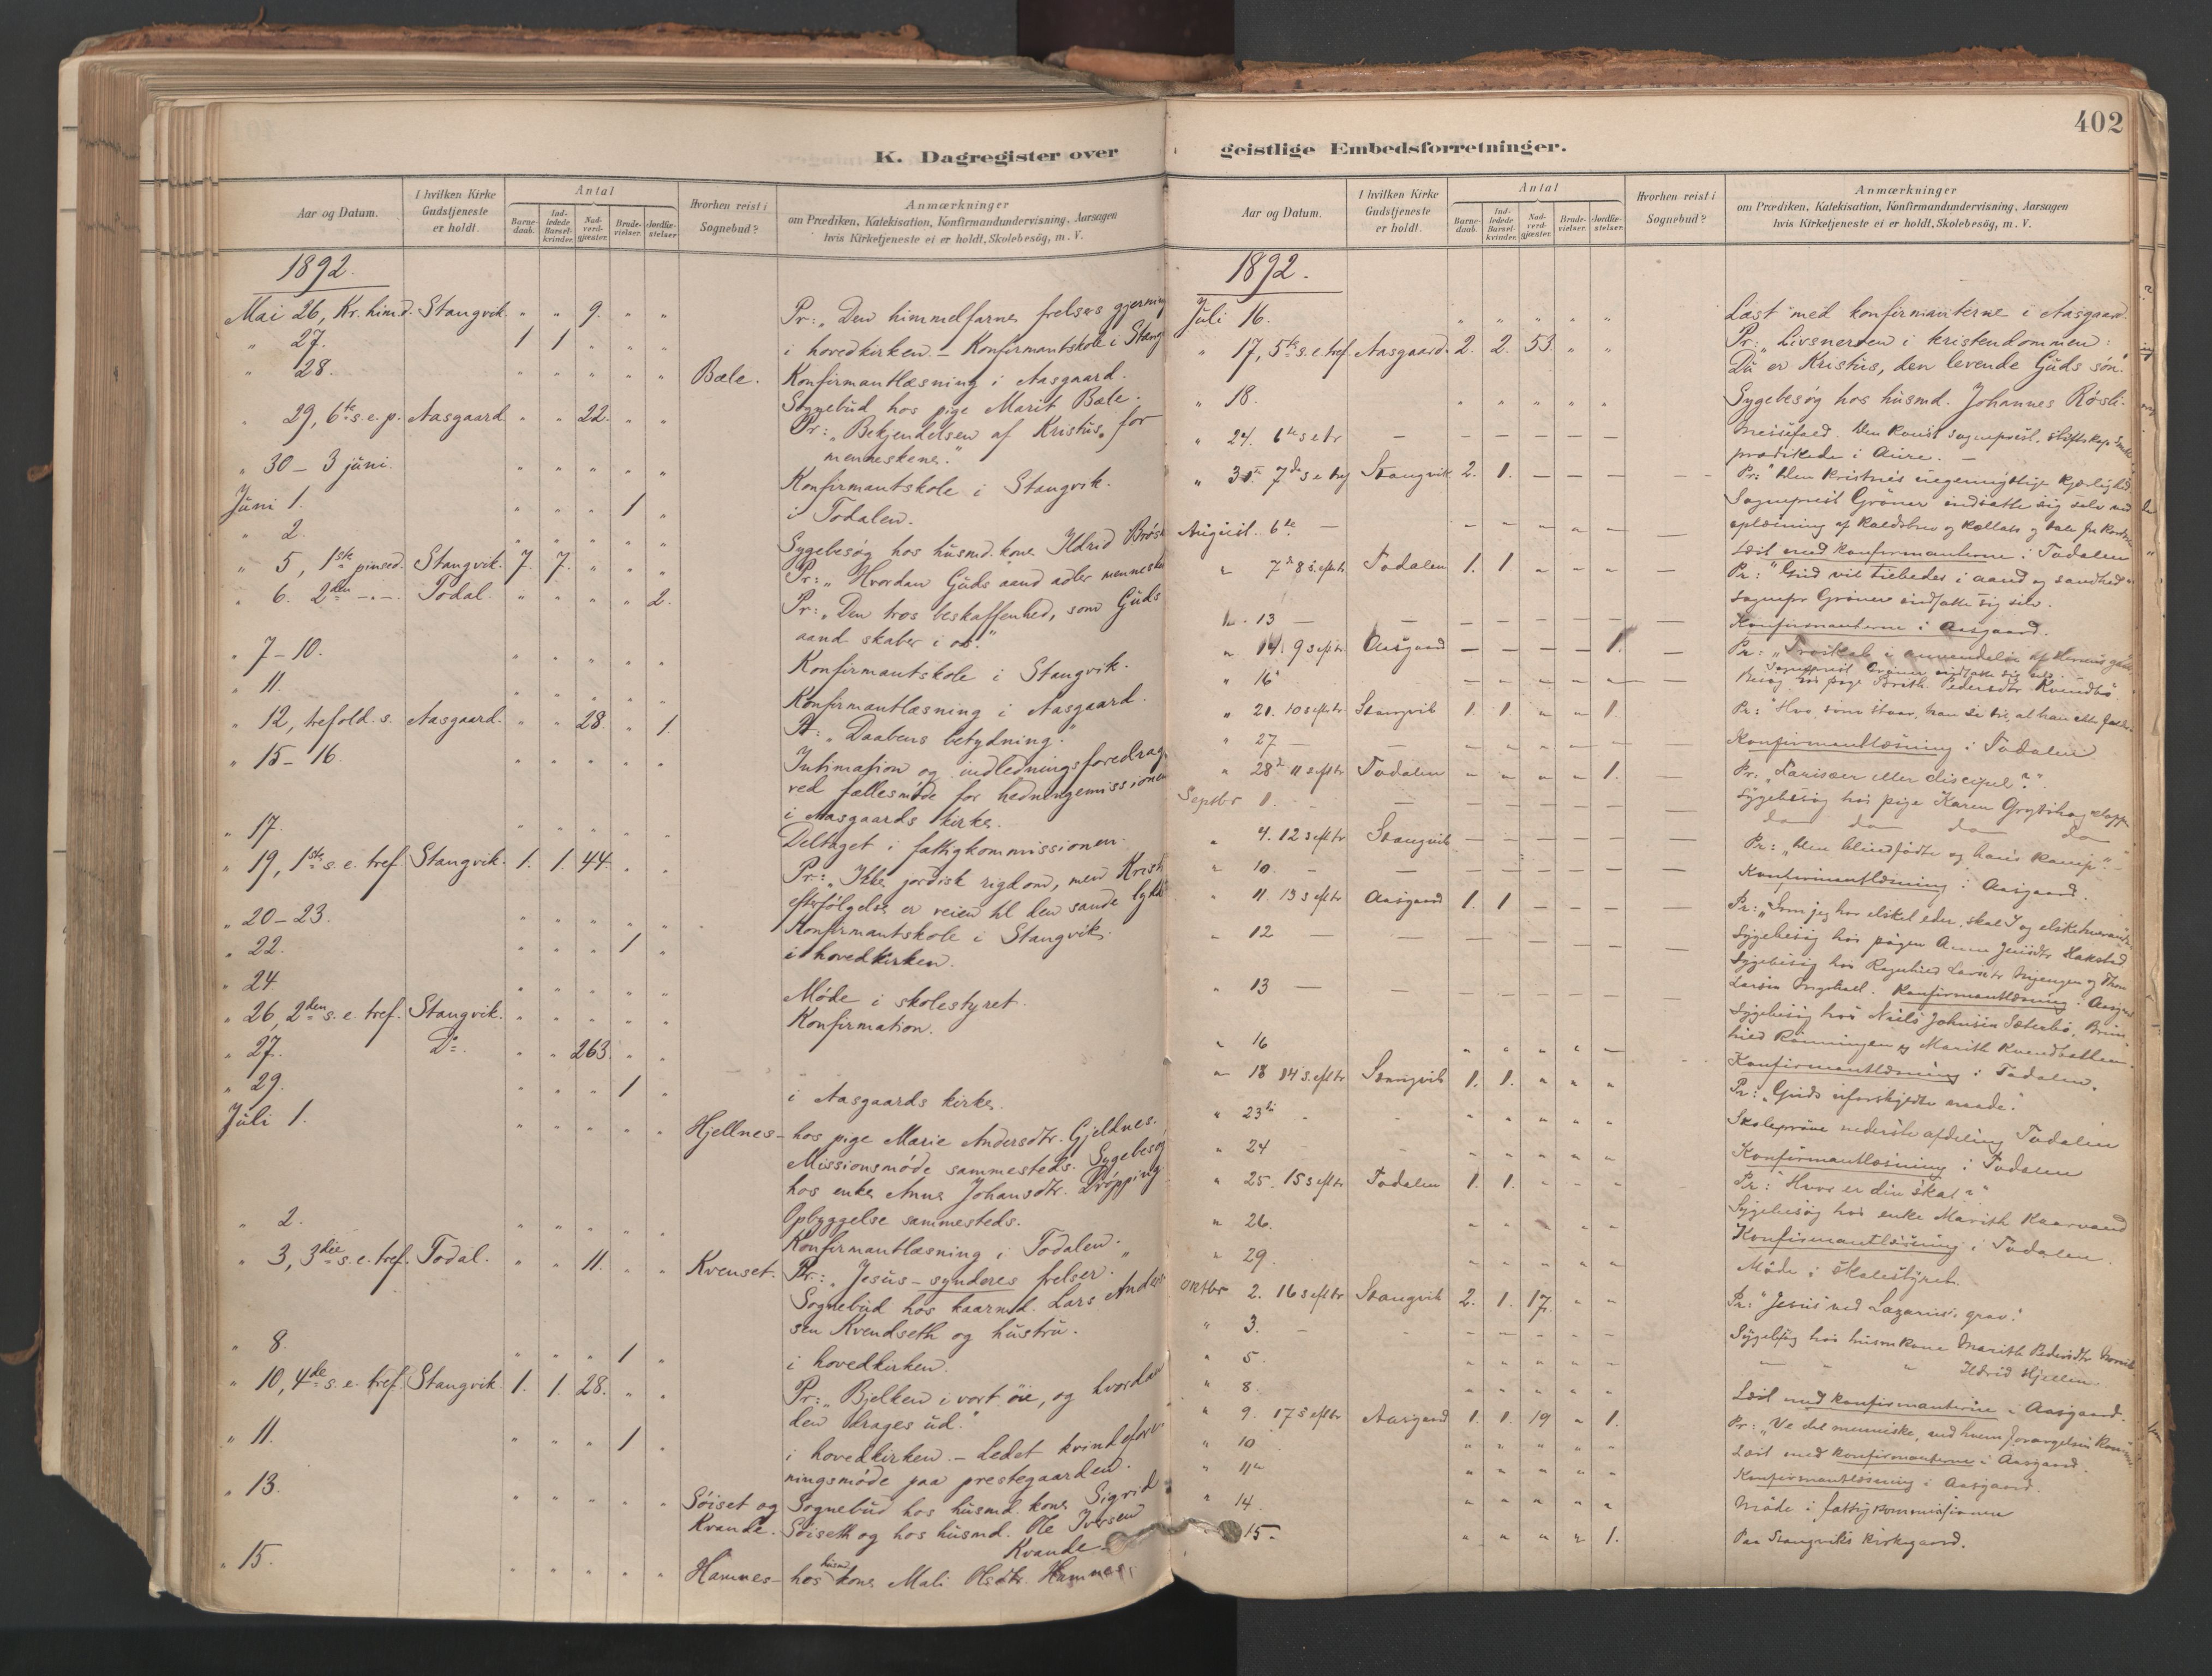 402
K. Dagregister over
Aar og Datum. I hvilken Kirke Gudstjeneste er holdt. Antal Barnedaab. Indledede Barselkvinder. Nadverdgjæster. Brudevielser. Jordfæstelser Hvorhen reist i Sognebud? Anmærkninger om Prædiken, Katekisation, Konfirmandundervisning, Aarsagen hvis Kirketjeneste ei er holdt, Skolebesög, m. V.
1892.
Mai 26, Kr. him.d. Stangvik. " " 9. " " Pr: "Den himmelfarnes frelsers gjerning
" 27. 1 1 " " " i hovedkirken. – Konfirmantskole i Stang
" 28. " " " " " Konfirmantlæsning i Aasgaard.
Bæle. Sognebud hos pige Marit Bæle.
" 29, 6te s. e. p. Aasgaard " " 22. " " Pr: "Bekjendelsen af Kristus for
menneskene."
" 30 – 3 juni. " " " " " Konfirmantskole i Stangvik.
Juni 1. " " " 1 " i Todalen.
" 2. " " " " " Sygebesøg hos husmd. kone Ildrid Brøsk
" 5, 1ste pinsed. Stangvik. 7. 7. " " " Pr: "Hvordan Guds aand adler menneske
" 6. 2den –"–. Todal. " " " " 2. Pr: "Den tros beskaffenhed, som Guds
aand skaber i os."
" 7–10. " " " " " Konfirmantskole i Stangvik.
" 11. " " " " " Konfirmantlæsning i Aasgaard.
" 12, trefold. s. Aasgaard. " " 28. " 1. Pr: "Daabens betydning."
" 15–16. " " " " " Intimation og indledningsforedrag
ved fællesmøde for hedningemissionen
i Aasgaards kirke.
" 17. " " " " " Deltaget i fattigkommissionen.
" 19, 1ste s. e. tref. Stangvik. 1. 1. 44. " " Pr: "Ikke jordisk rigdom, men Kristi
efterfølgelse er veien til den sande lykke
" 20–23. " " " " " Konfirmantskole i Stangvik.
" 22. " " " 1 " i hovedkirken.
" 24. " " " " " Møde i skolestyret.
" 26, 2den s. e. tref. Stangvik. " " " " " Konfirmation.
" 27. Do. " " 263. " "
" 29. " " " 1 " i Aasgaards kirke.
Juli 1. " " " " " Hjellnes – hos pige Marie Andersdtr. Gjeldnes.
Missionsmøde sammesteds. Sygebesøg
hos enke Anne Johansdtr. Drøpping.
Opbyggelse sammesteds.
" 2. " " " " " Konfirmantlæsning i Todalen.
" 3, 3die s. e. tref. Todal. " " 11. " " Kvenset. Pr: "Jesus – synderes frelser."
Sognebud hos kaarmd. Lars Anders
sen Kvendseth og hustru.
" 8. " " " 1 " i hovedkirken.
" 10, 4de s. e. tref. Stangvik 1. 1. 28. " " Pr: "Bjelken i vort øie, og hvordan
den drages ud."
" 11. " " " 1 " i hovedkirken. – Ledet kvindefore
ningsmøde paa prestegaarden.
" 13. " " " " " Søiset og Sognebud hos husmd. kone Sigrid
Kvande. Søiseth og hos husmd. Ole Iversen
Kvande.
" 15. " " " " " Hamnes – hos husmd kone Mali Olsdtr. Hamnes.
geistlige Embedsforretninger.
Aar og Datum. I hvilken Kirke Gudstjeneste er holdt. Antal Barnedaab. Indledede Barselkvinder. Nadverdgjæster. Brudevielser. Jordfæstelser. Hvorhen reist i Sognebud? Anmærkninger om Prædiken, Katekisation, Konfirmandundervisning, Aarsagen hvis Kirketjeneste ei er holdt, Skolebesög, m. V.
1892.
Juli 16. " " " " " Læst med konfirmanterne i Aasgaard.
" 17, 5te s. e. tref. Aasgaard. 2. 2. 53. " " Pr: "Livsnerven i kristendommen:
Du er Kristus, den levende Guds søn."
" 18. " " " " " Sygebesøg hos husmd. Johannes Røsli.
" 24. 6te s e tr – – – – – – Messefald. Den konst sogneprest, stiftskap.
prædikede i Aure. –
" 31. 7de s e tr Stangvik 2. 1. – – – Pr: "Den kristnes uegennyttige kjærlighed
Sogneprest Grøner indsatte sig selv med
oplæsning af kaldsbrev og kollats og
August 6te – – – – – – Læst med konfirmanterne i Todalen
" 7de 8 s. eftr Todalen 1. 1. – – – Pr: "Gud vil tilbedes i aand og sandhed"
Sognepr Grøner indsatte sig selv.
" 13 – – – – – – – Konfirmanterne i Aasgaard.
" 14. 9 s eftr Aasgaard – – – – 1. Pr: "Troskab i anvendelse af Herrens
Sogneprest Grøner indsatte sig selv
" 16 – – – – – – Besøg hos pige Pedersdtr Kvendbø
" 21. 10 s eftr Stangvik 1. 1. " " 1. Pr: "Hvo, som staar, han se til, at han ikke falder
" 27 – – – – – – – Konfirmantlæsning i Todalen
" 28de 11 s eftr Todalen " " " " 1. Pr: "Farisæer eller discipel?"
Septbr 1. – – – – – – Sygebesøg hos pige Karen
do do do do
" 4. 12 s eftr Stangvik – – – – – Pr: "Den blindfødte og hans kamp". –
" 10. – – – – – – – Konfirmantlæsning i Aasgaard.
" 11. 13 s eftr Aasgaard 1. 1 – – – Pr: "Som jeg har elsket eder, skal I og elske hverandre
" 12 – – – – – – – Sygebesøg hos pigen Anne Jensdtr Hakstad
Sygebesøg hos Ragnhild Larsdtr
" 13 – – – – – – Larsen. Konfirmantlæsning i Aasgaard
Sygebesøg hos Niels Johnsen Sæterbø,
Rønningen og Marith Kvendsethem.
" 16 " " " " – Konfirmantlæsning i Todalen.
" 18 14 s. eftr Stangvik 1. 1. " " " Pr: "Guds uforskyldte naade."
" 23de – " " " " " Skoleprøve nederste afdeling Todalen
" 24 " " " " " Konfirmantlæsning i Todalen
" 25. 15 s eftr Todalen 1. 1. " " " Pr: "Hvor er din skat?"
" 26. " " " " " Sygebesøg hos enke Marith Kaarvand
Konfirmantlæsning i Todalen.
" 29. " " " " " Møde i skolestyret.
Oktbr 2. 16 s eftr Stangvik 2. 1. 17. " " Pr: "Jesus ved Lazarus's grav."
" 3. – – – – – – Sygebesøg hos husmkone Marith Pedersdtr
" 5. " " " " " – " " Ildrid Hjellen.
" 8. " " " " " Læst med konfirmanterne i Aasgaard.
" 9. 17 s eftr Aasgaard 1. 1. 19 " 1. Pr: "Ve det menneske, ved hvem forargelsen kommer
" 10 " " " " " Læst med konfirmanterne i Aasgaard.
" 11te " " " " " Konfirmantlæsning i Aasgaard.
" 14. " " " " " Møde i fattigkommissionen
15. – " " " " 1. Paa Stangviks kirkegaard.